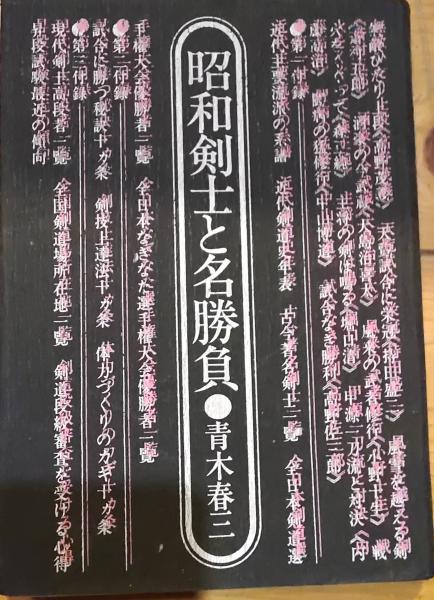 無敵ひだり上段〈高野茂義〉 天覧試合に栄冠〈持田盛二〉 風雪を越える剣
〈斎村五郎〉 の今武蔵〈大島治喜太〉 の武者修行〈小野十生〉 戦
火をくぐって の剣は鳴る〈堀口清〉 甲源一刀流と対決〈内
藤高治〉 修行〈中山博道〉 試合なき勝利〈高野佐三郎〉
●第一付録
近代主要流派の系譜 近代剣道史年表 古今著名剣士一覧 全日本剣道選
昭和剣士と名勝負●青木春三
手権大会優勝者一覧 全日本なぎなた選手権大会優勝者一覧
●第二付録
試合に勝つ秘訣十カ条 剣技上達法十カ条 体力づくりのカギ十カ条
●第三付録
現代剣士高段者一覧 全国剣道場所在地一覧 剣道段級審査を受ける心得
昇段試験最近の傾向